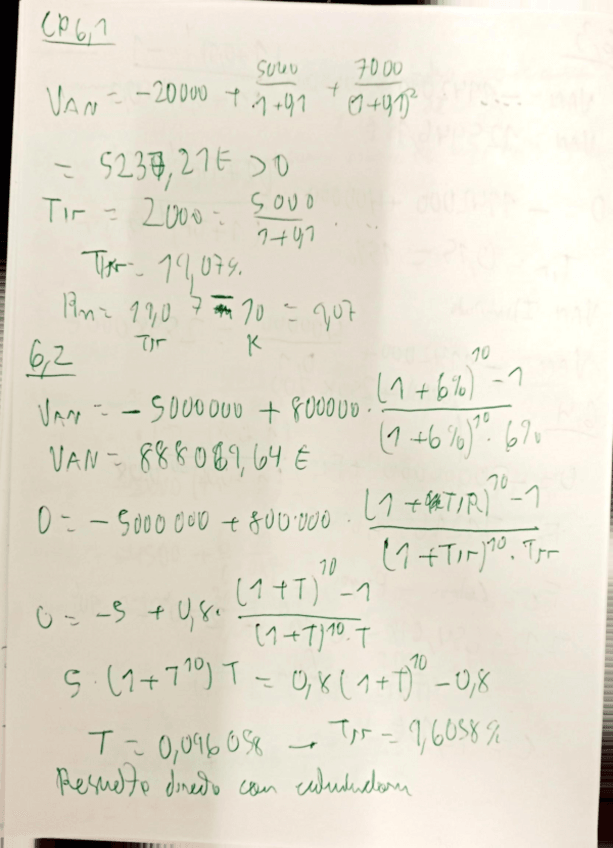 CP 6,1
VAN = -20000 + 5000/1+0,1 + 7000/(1+0,1)² ....
= 5237,27€ >0
Tir = 2000 = 5000/1+0,1 ...
Tir = 19,07%.
Rn = 19,07 - 10 = 9,07
Tir K
6,2
VAN = -5000000 + 800000 · (1+6%)^10 -1 / (1+6%)^10 · 6%
VAN = 888069,64 €
0 = -5000000 + 800.000 · (1+TIR)^10 -1 / (1+Tir)^10 · Tir
0 = -5 + 0,8 · (1+T)^10 -1 / (1+T)^10 · T
5 · (1+T^10) T = 0,8 (1+T)^10 - 0,8
T = 0,096058 → Tir = 9,6058%
direto con